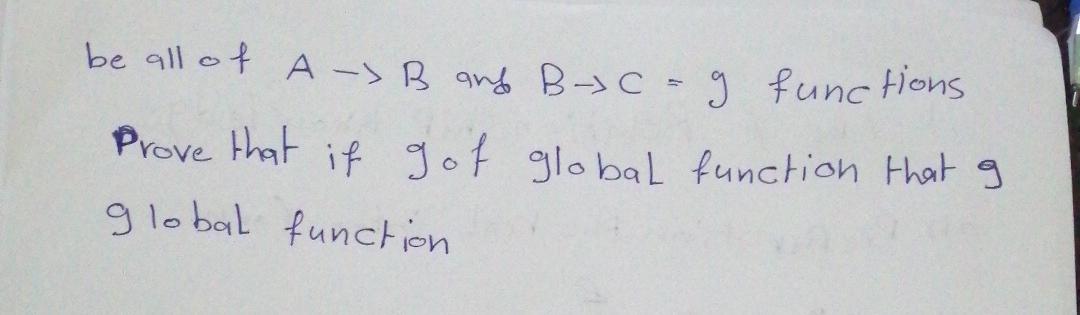 be all of A -> B and B -> C = g functions
Prove that if gof global function that g
global function